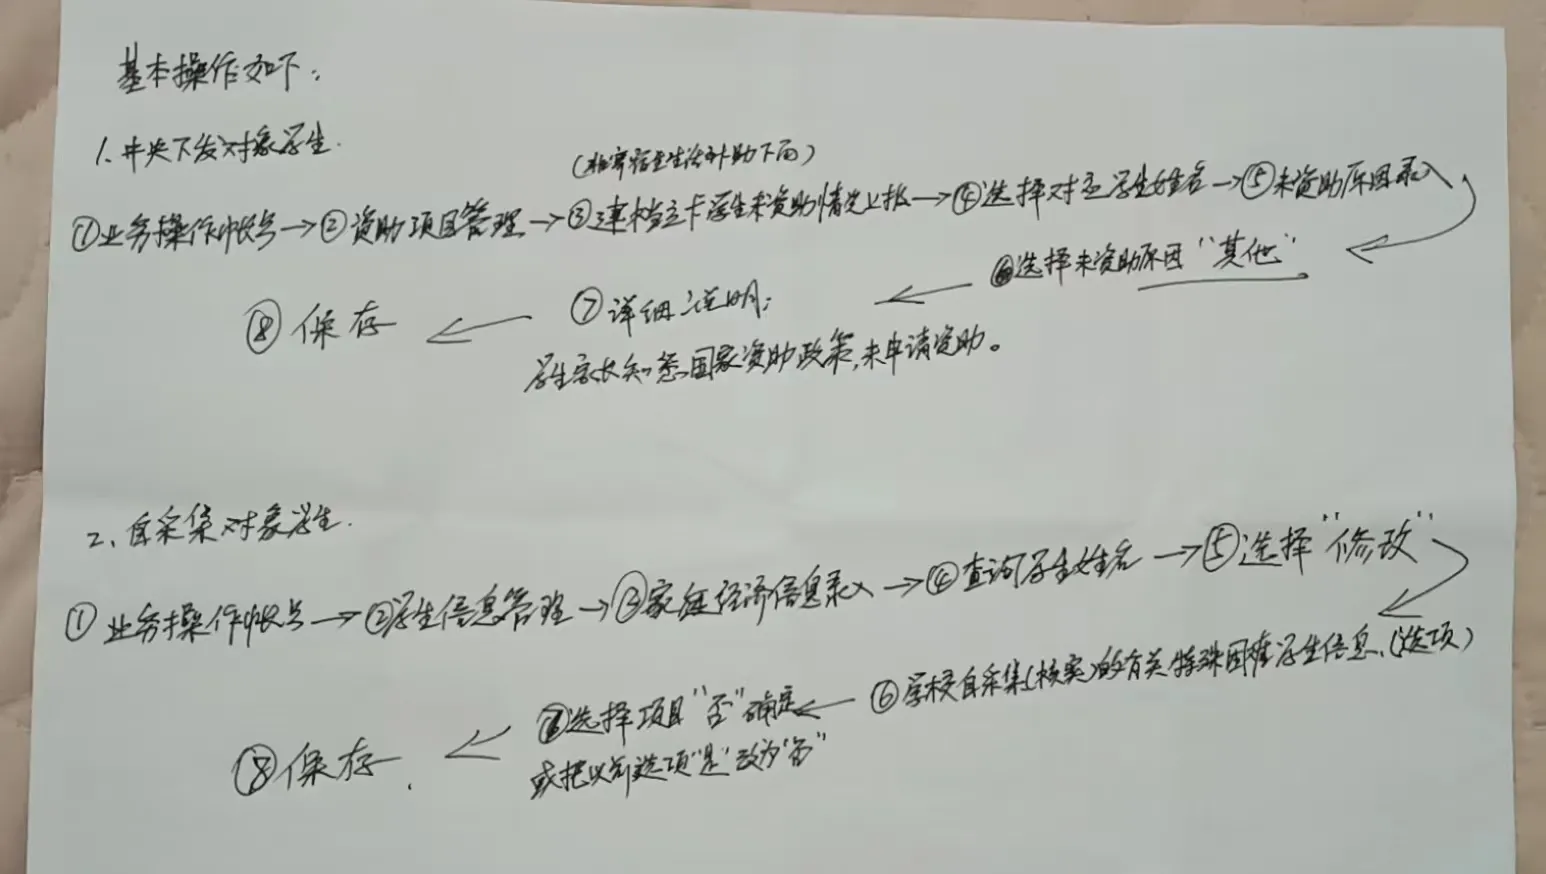 基本操作如下：
1、中央下发对象学生.
(非寄宿生生活补助下面)
①业务操作帐号→②资助项目管理→③建档立卡学生未资助情况上报→④选择对应学生姓名→⑤未资助原因录入
⑥选择未资助原因“其他”
⑦详细说明：
学生家长知悉国家资助政策,未申请资助。
⑧保存
2、自采集对象学生.
①业务操作帐号→②学生信息管理→③家庭经济信息录入→④查询学生姓名→⑤选择“修改”
⑥学校自采集(核实)的有关特殊困难学生信息、(选项)
⑦选择项目“否”确定
或把以前选项“是”改为“否”
⑧保存.